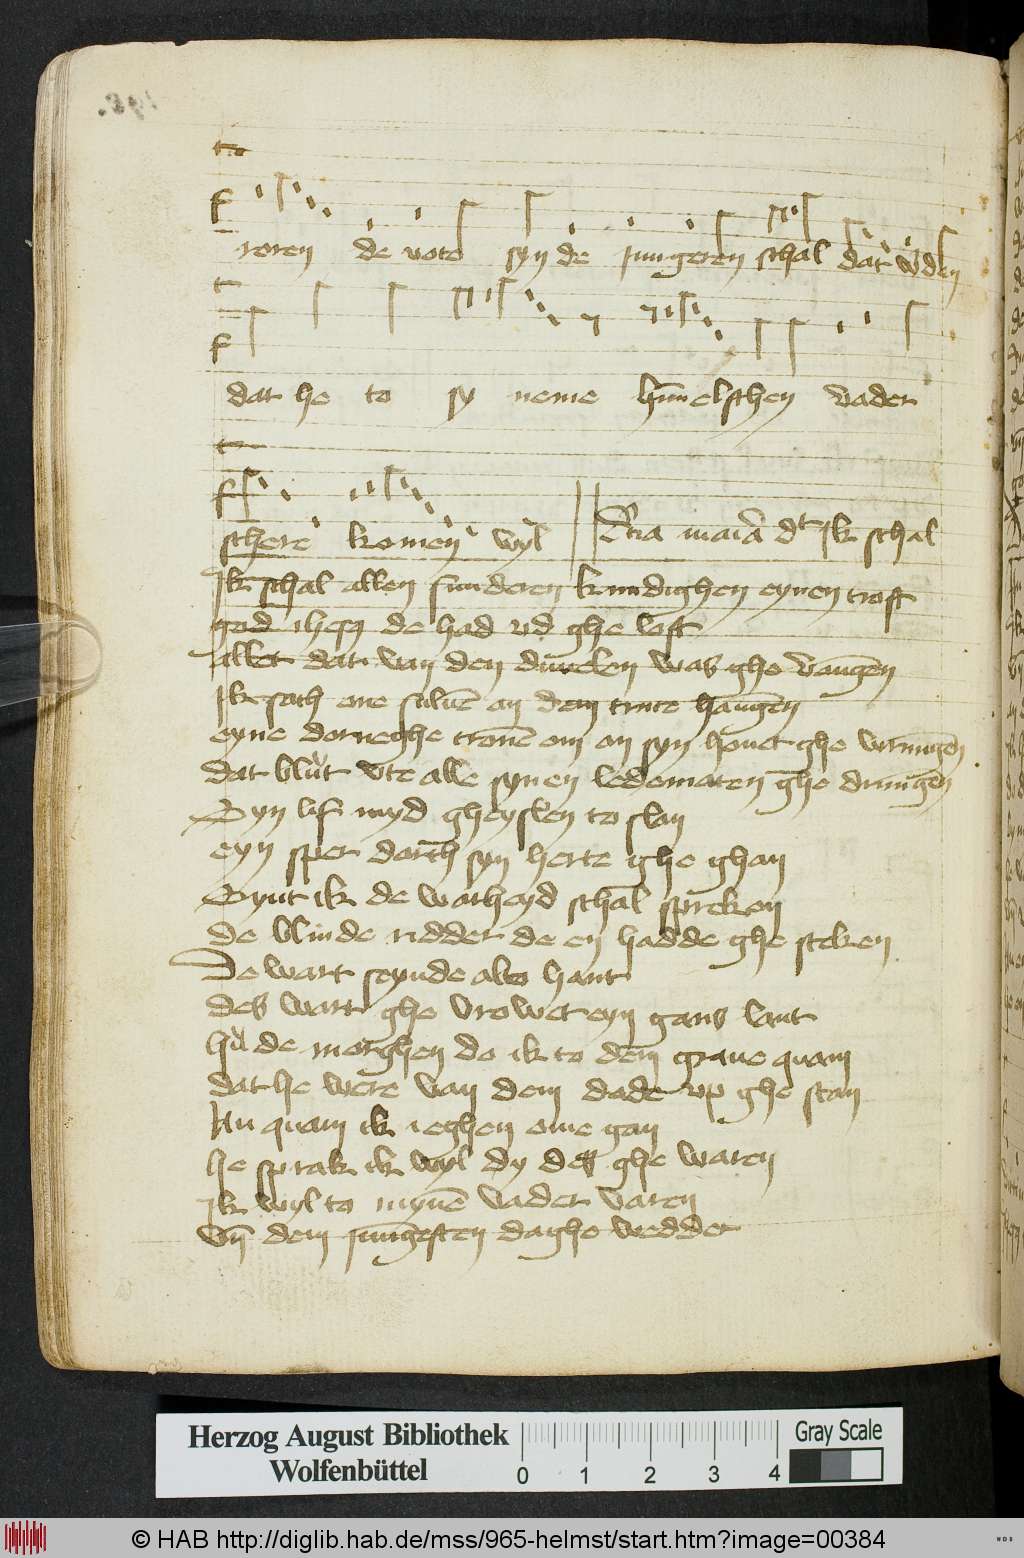 roren de vote syn de jungeren schal dat w̄den
dat he to sy neme hīmelschen vader
schere komen wyl Tercia maria dt Ik schal
Ik schal allen sunderen kundighen eynen trost
god ihesus de had vs ghe lost
allet dat van den duuelen was ghe vangē
Ik sach ene suluē an dem cruce hangē
eyne dorneghe cronē om an syn houet ghe wrungē
dat blut vte alle synen ledematen ghe drungē
Syn lif myd gheyslen to slan
eyn sper dorch syn herte ghe ghan
Synt ik de warheyd schal spreken
de blinde ridder de en hadde ghe steken
De wart seynde also hant
des wart ghe vrowet eyn gans lant
hude morghen do ik to dem graue quam
dat he were van dem dode up ghe stan
Nu quam ik ieghen ome gan
he sprak ik wyl dy des ghe waren
ik wyl to mynē vader varen
vn̄ dem jungesten daghe wedder
Herzog August Bibliothek
Wolfenbüttel
0 1 2 3 4
Gray Scale
© HAB http://diglib.hab.de/mss/965-helmst/start.htm?image=00384